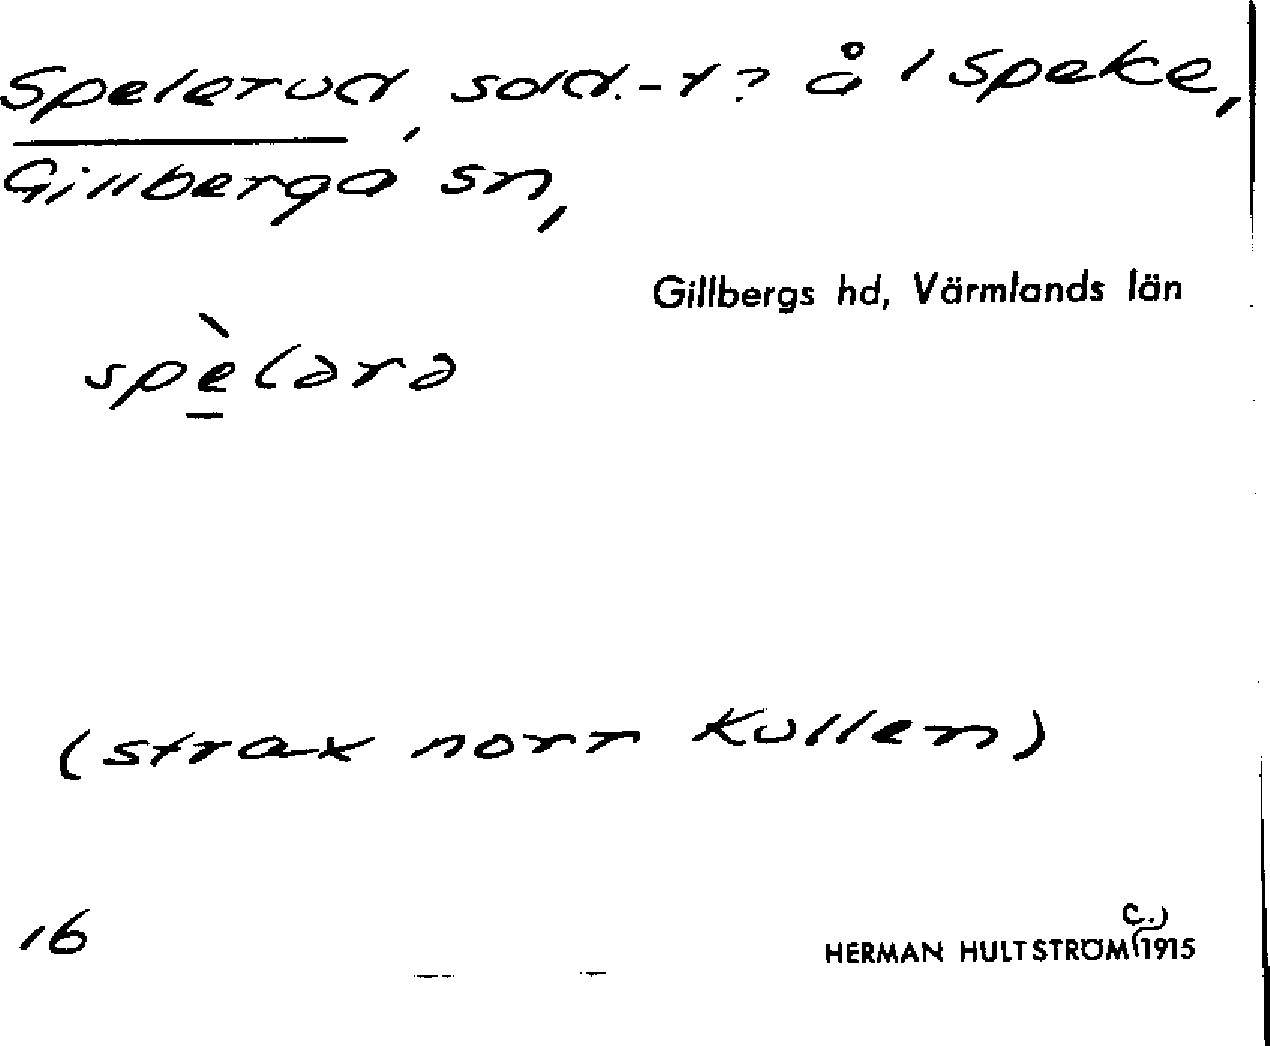 Spelerud, sold.-t? å 1 Speke,
Gillberga sn,
Gillbergs hd, Värmlands län
spè̠lərə
(strax norr Kullen)
16
c.)
HERMAN HULTSTRÖM 1915